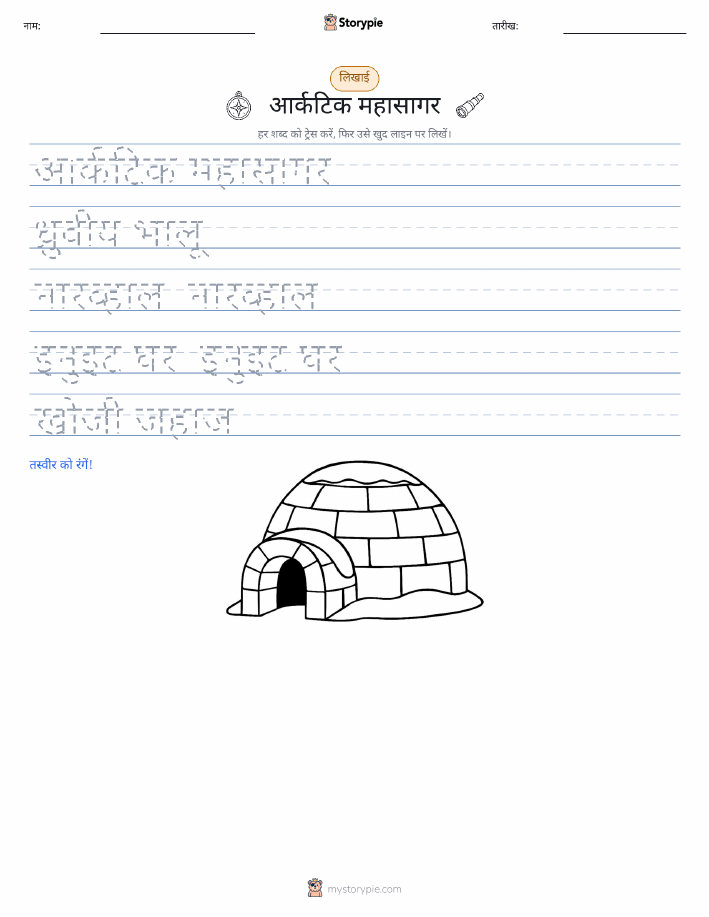 नाम:
Storypie
तारीख:
लिखाई
आर्कटिक महासागर
हर शब्द को ट्रेस करें, फिर उसे खुद लाइन पर लिखें।
आर्कटिक महासागर
ध्रुवीय भालू
नारव्हाल नारव्हाल
इनुइट घर इनुइट घर
खोजी जहाज
तस्वीर को रंगें!
mystorypie.com